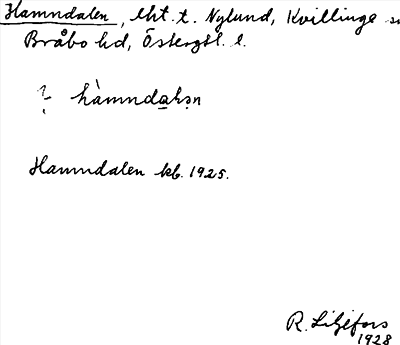 Hamndalen, lht. t. Nylund, Kvillinge sn
Bråbo hd, Östergtl. l.
? hàmndaḷsn
Hamndalen kb. 1925.
R. Liljefors
1928